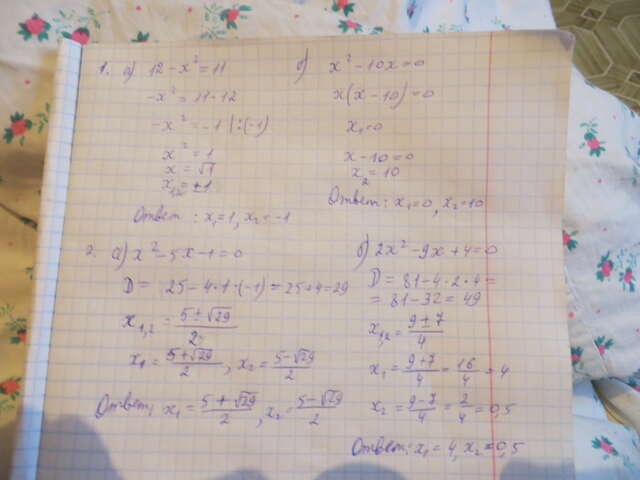 1. а) 12 - x² = 11
-x² = 11 - 12
-x² = -1 | : (-1)
x² = 1
x = √1
x₁,₂ = ±1
Ответ : x₁ = 1, x₂ = -1
б) x² - 10x = 0
x(x - 10) = 0
x₁ = 0
x - 10 = 0
x₂ = 10
Ответ : x₁ = 0, x₂ = 10
2. а) x² - 5x - 1 = 0
D = 25 - 4·1·(-1) = 25 + 4 = 29
x₁,₂ = (5 ± √29)/2
x₁ = (5 + √29)/2 , x₂ = (5 - √29)/2
Ответ: x₁ = (5 + √29)/2 , x₂ = (5 - √29)/2
б) 2x² - 9x + 4 = 0
D = 81 - 4·2·4 =
= 81 - 32 = 49
x₁,₂ = (9 ± 7)/4
x₁ = (9 + 7)/4 = 16/4 = 4
x₂ = (9 - 7)/4 = 2/4 = 0,5
Ответ: x₁ = 4, x₂ = 0,5